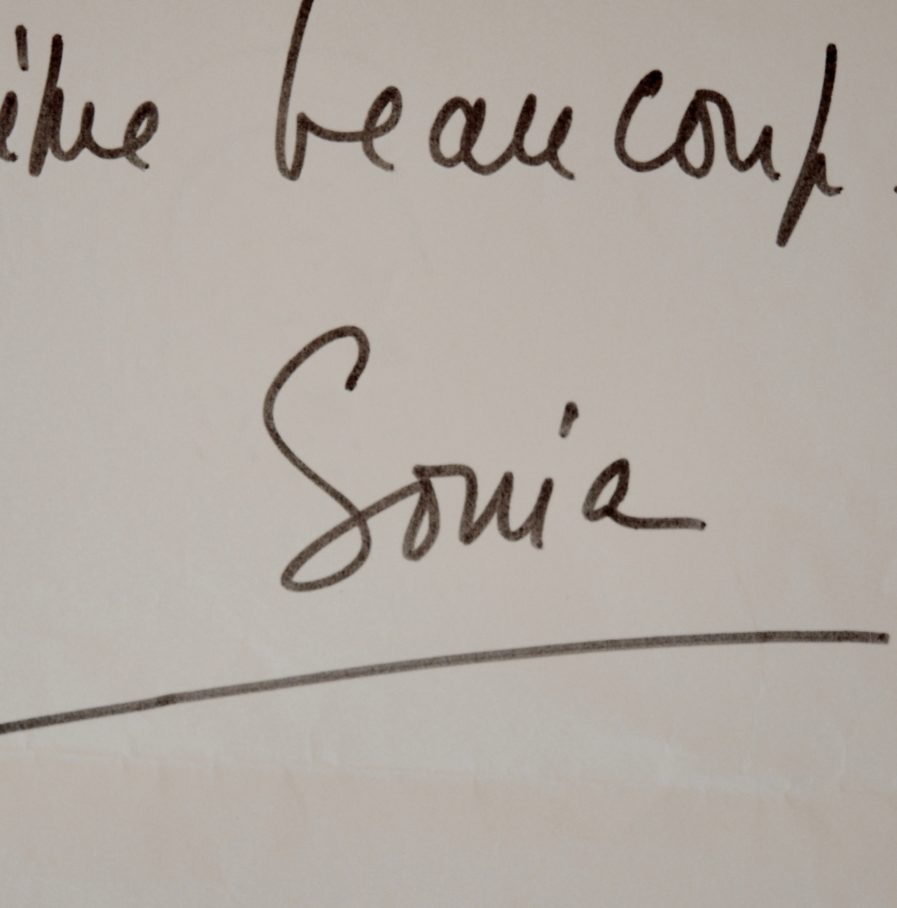 beaucoup.
Sonia